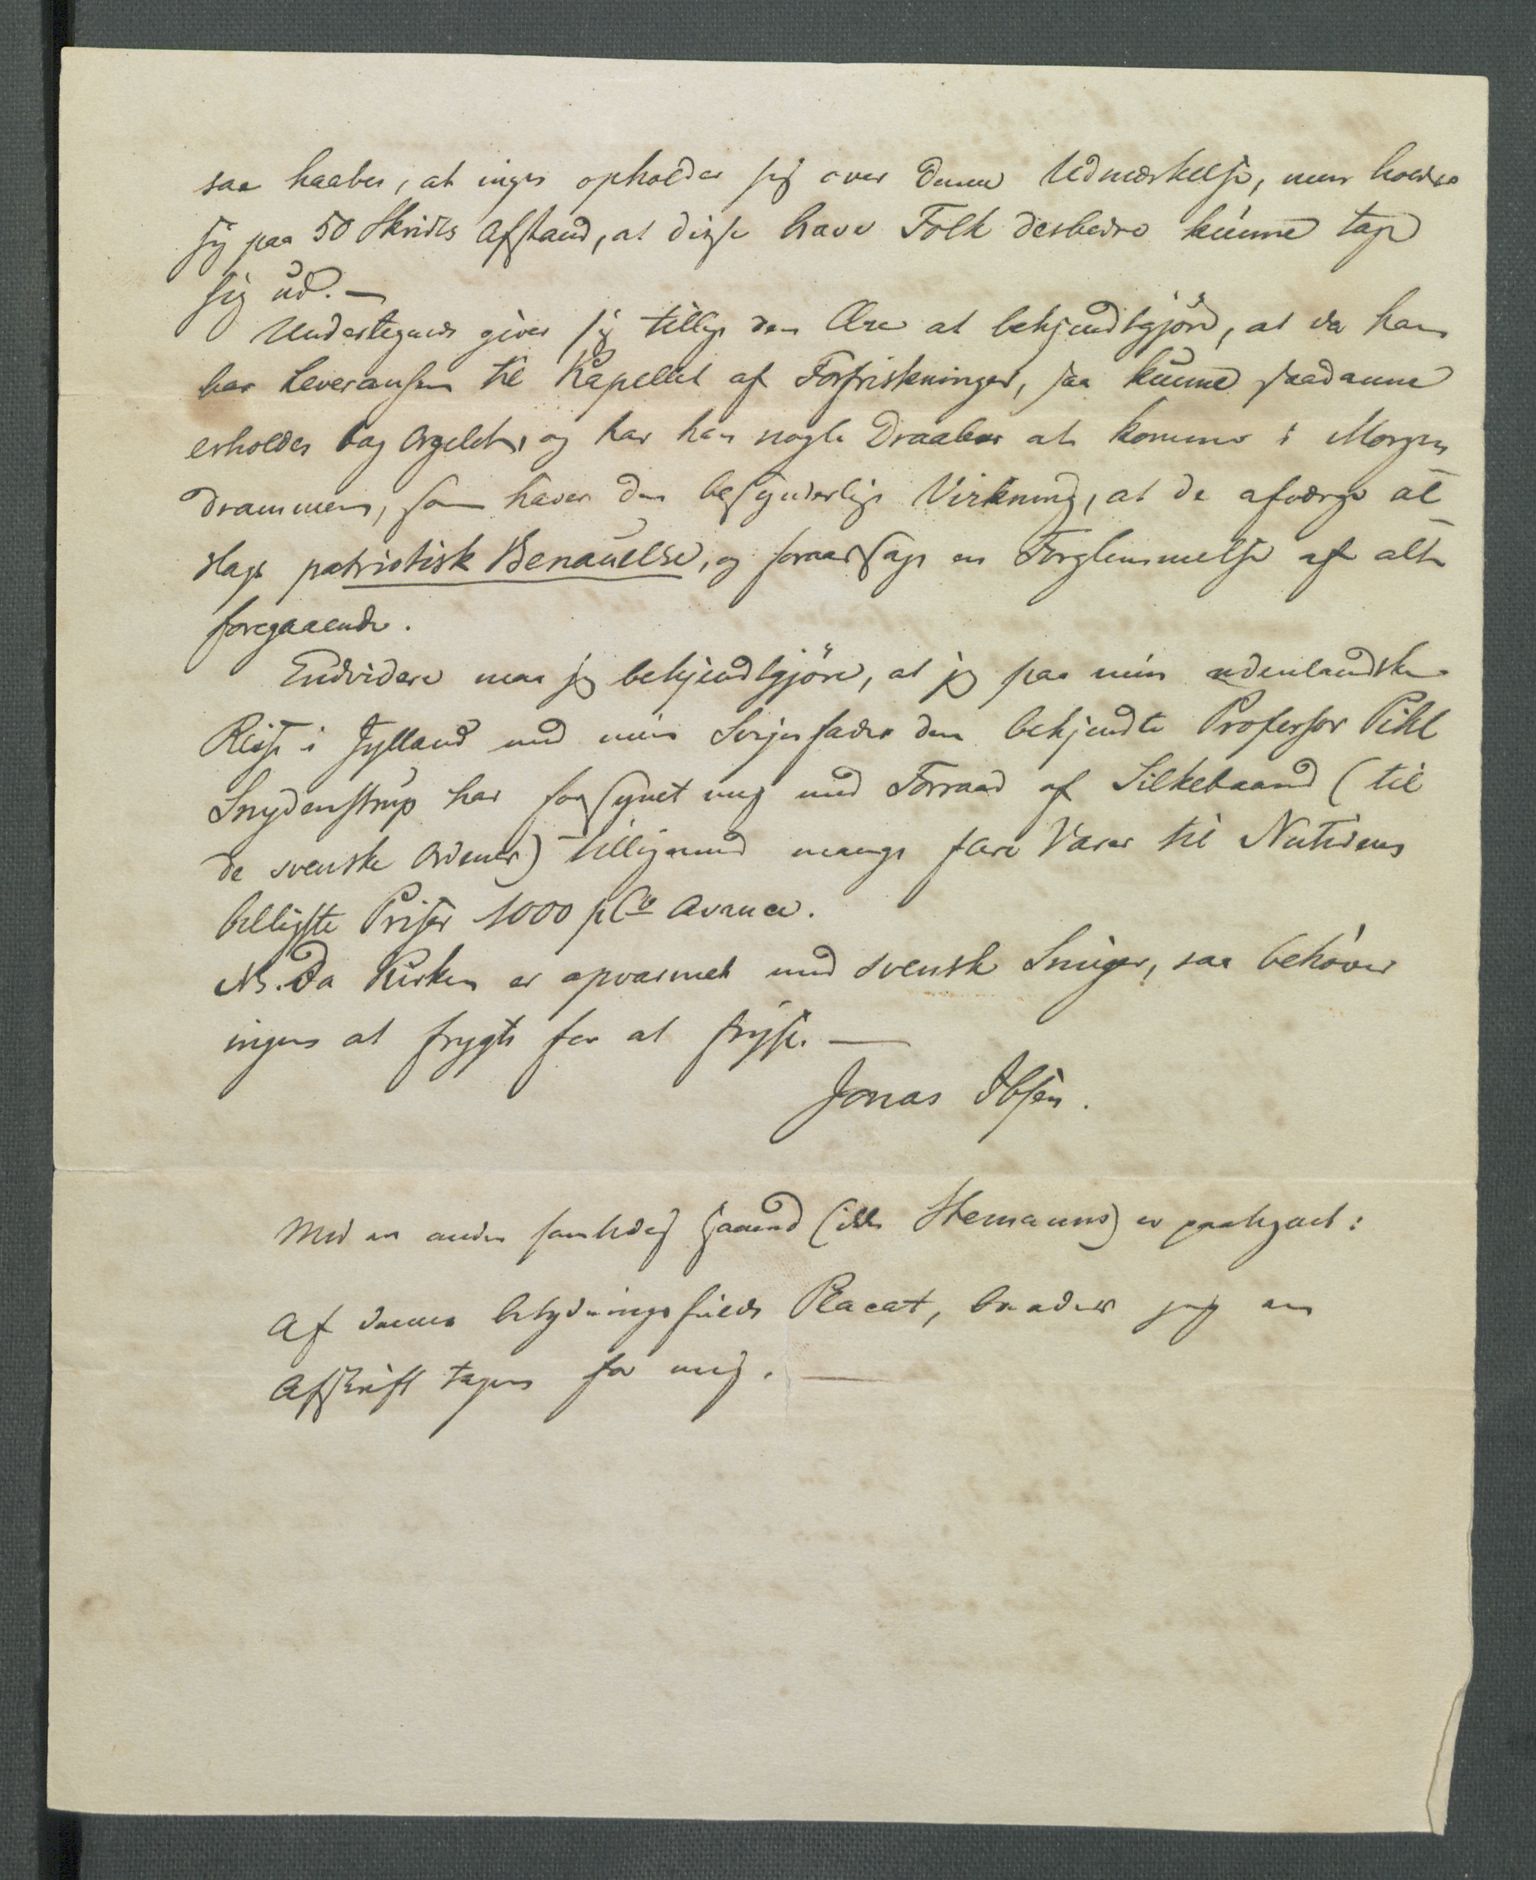 saa haabes, at ingen opholder sig over denne Udmærkelse, men holder
sig paa 50 Skridts Afstand, at disse brave Folk desbedre kunne tage
sig ud. —
Undertegnede giver sig tillige den Ære at bekjendtgjöre, at da han
har Leveransen til Kapellet af Forfriskninger, saa kunne saadanne
erholdes bag Orgelet, og har han nogle Draaber at komme i Morgen
drammen, som haver den besynderlige Virkning, at de afværge al
slags patriotisk Benauelse, og foraarsage en Forglemmelse af alt
foregaaende.
Endvidere maa jeg bekjendtgjöre, at jeg paa min udenlandske
Reise i Jylland med min Svigerfader den bekjendte Professor Pihl
Snydenstrup har forsynet mig med Forraad af Silkebaand (til
de svenske Ordener) tilligemed mange flere Varer til Nutidens
billigste Priser 1000 pCto Avance.
NB. Da Kirken er opvarmet med svensk Smiger, saa behøver
ingen at frygte for at fryse. —
Jonas Ibsen.
Med en anden samtidig Haand (ikke Stemanns) er paategnet:
Af denne betydningsfulde Placat, beder jeg en
Afskrift tagen for mig. —